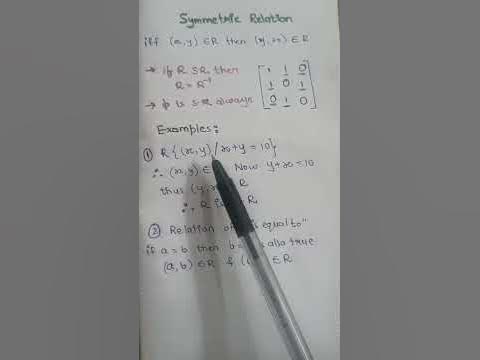 Symmetric Relation
iff (x,y) ∈R then (y,x) ∈ R
→ if R S.R. then
R = R⁻¹
1 1 0
1 0 1
0 1 0
→ φ is S.R always
Examples:
① R{(x,y)/x+y = 10}
∴ (x,y) ∈ Now y+x=10
thus (y, R
∴ R is R
② Relation of is equal to"
if a = b then b= is also true
(a,b) ∈R & ( ∈ R